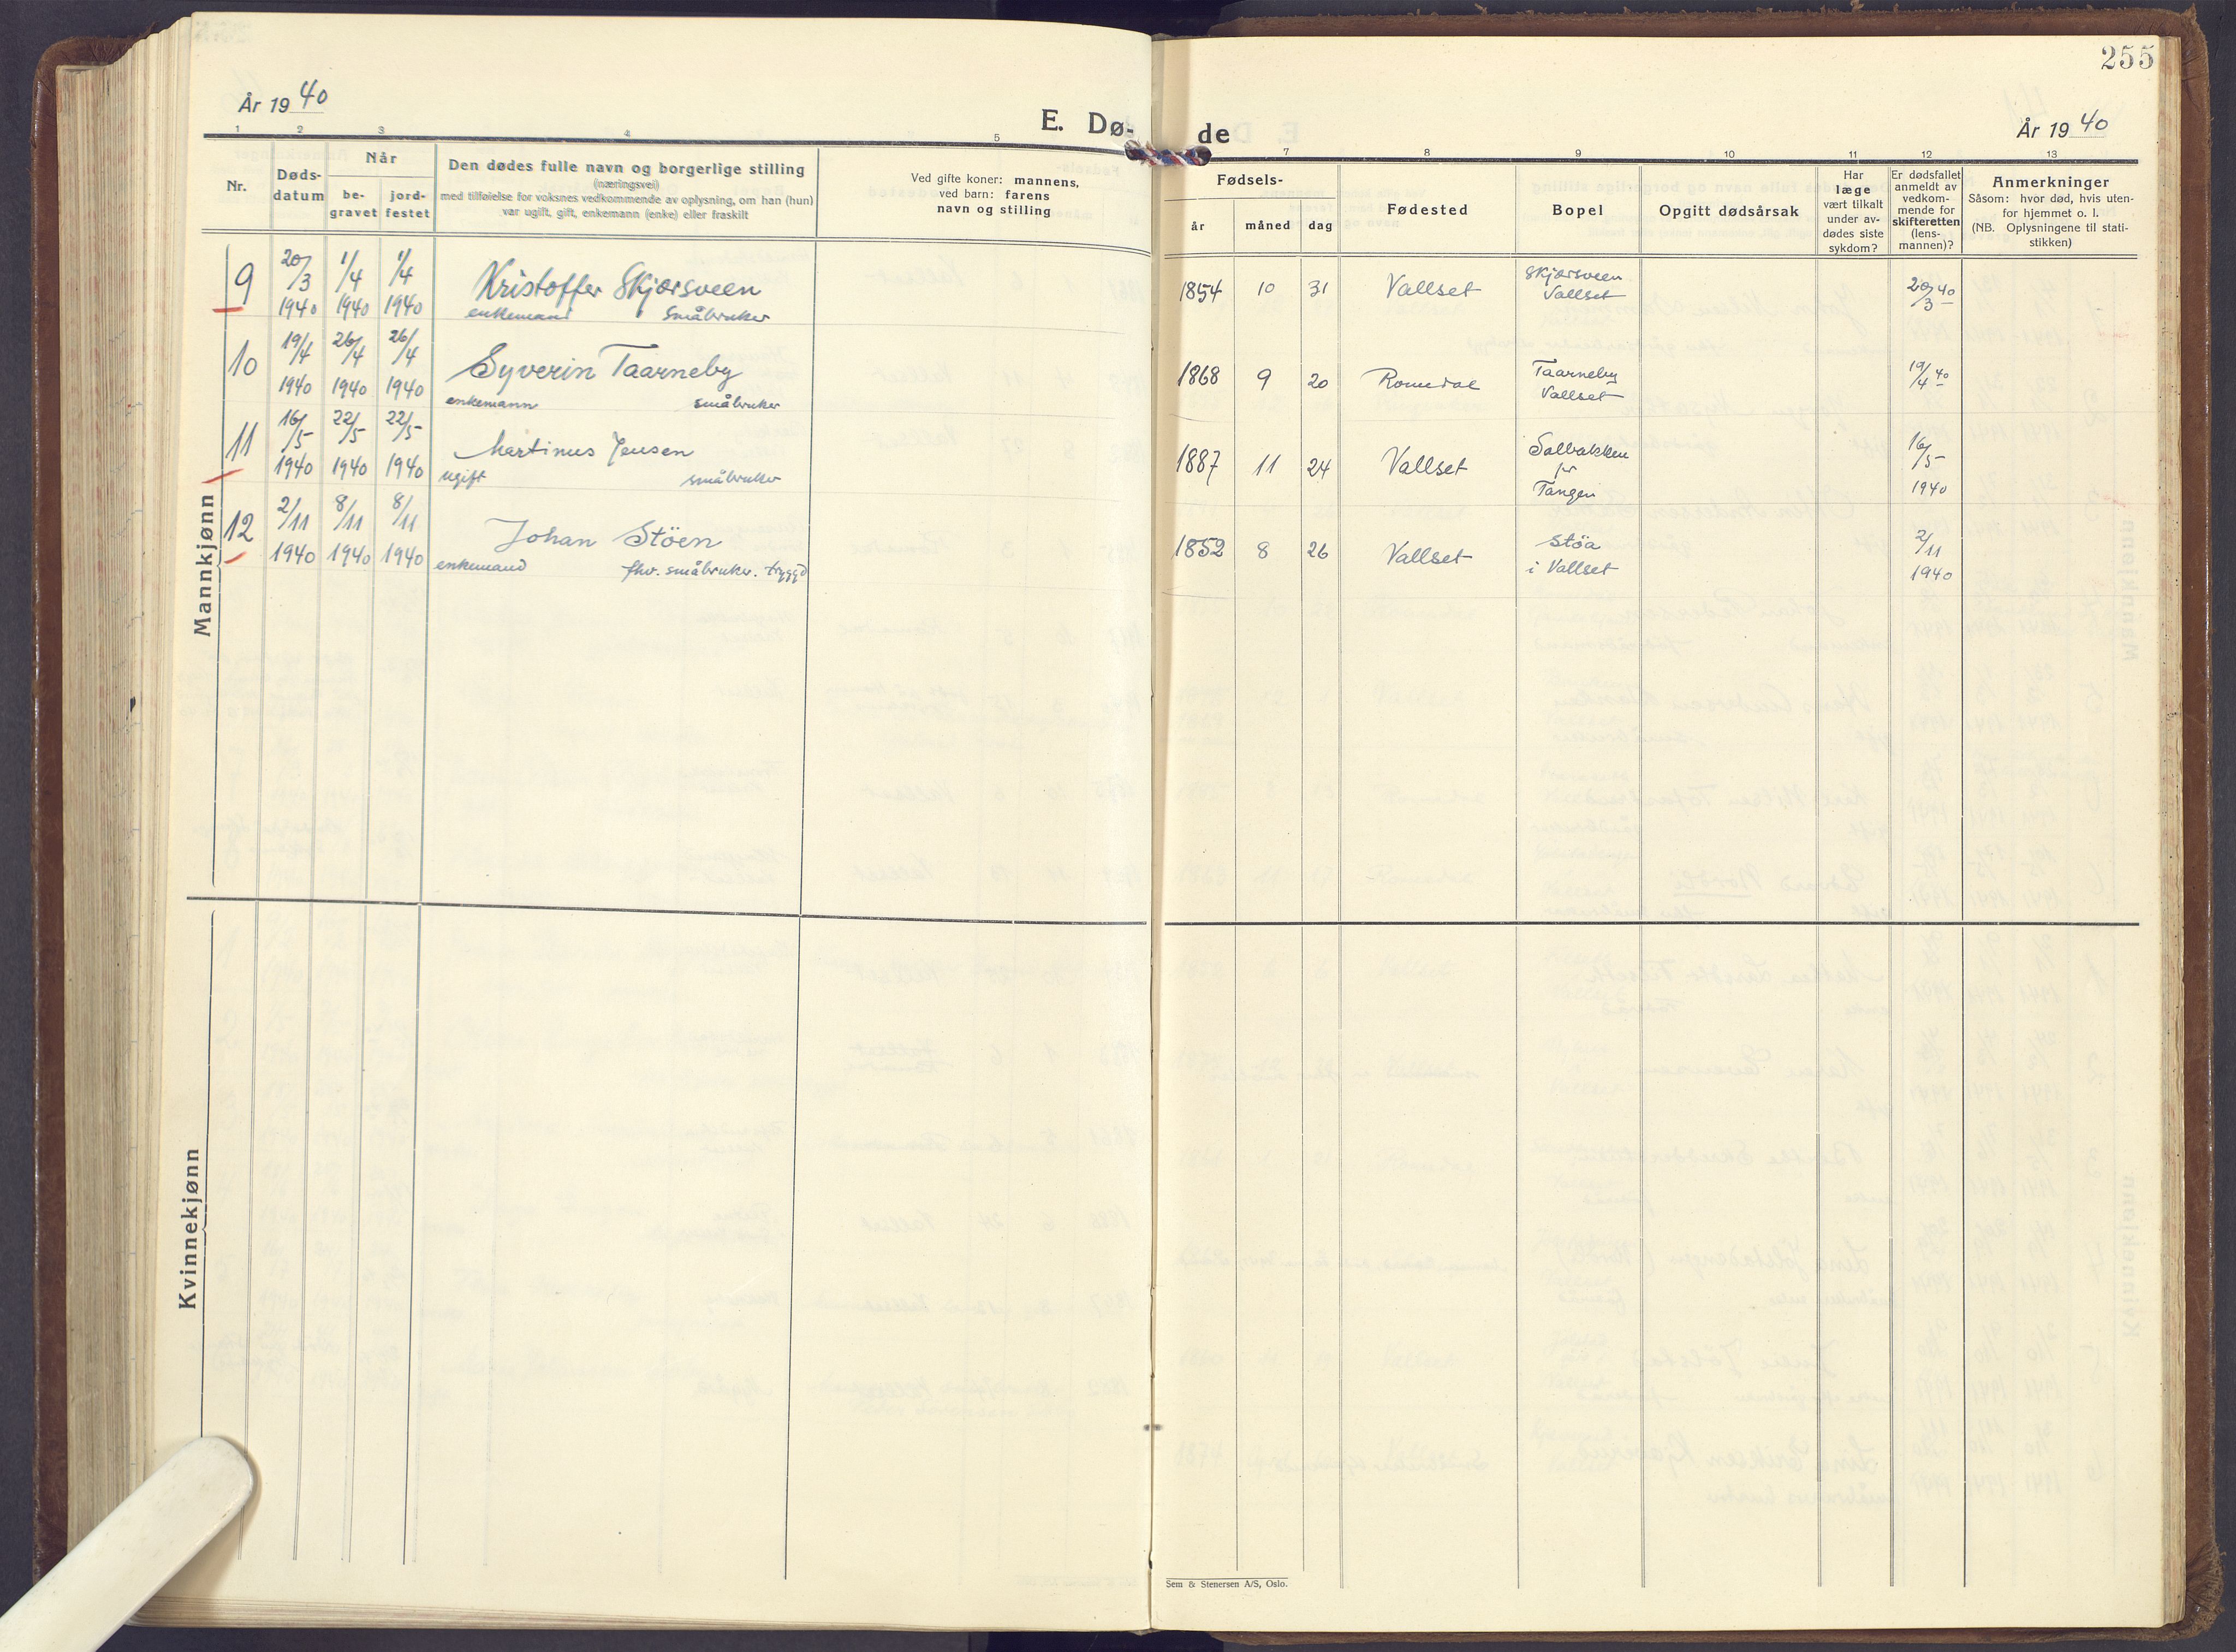 255
År 1940
E. Dø-
de
År 1940
1 2 3 4 5
7 8 9 10 11 12 13
Nr.
Døds-
datum
Når
be-
gravet
jord-
festet
Den dødes fulle navn og borgerlige stilling
(næringsvei)
med tilføielse for voksnes vedkommende av oplysning, om han (hun)
var ugift, gift, enkemann (enke) eller fraskilt
Ved gifte koner: mannens,
ved barn: farens
navn og stilling
Fødsels-
år måned dag
Fødested
Bopel
Opgitt dødsårsak
Har
læge
vært tilkalt
under av-
dødes siste
sykdom?
Er dødsfallet
anmeldt av
vedkom-
mende for
skifteretten
(lens-
mannen)?
Anmerkninger
Såsom: hvor død, hvis uten-
for hjemmet o. l.
(NB. Oplysningene til stati-
stikken)
Mannkjønn
9 20/3 1/4 1/4 Kristoffer Skjærsveen 1854 10 31 Vallset Skjærsveen Vallset 20/3 40
1940 1940 1940 enkemand småbruker
10 19/4 26/4 26/4 Syverin Taarneby 1868 9 20 Romedal Taarneby Vallset 19/4 40
1940 1940 1940 enkemann småbruker
11 16/5 22/5 22/5 Martinus Jensen 1887 11 24 Vallset Solbakken pr Tangen 16/5 1940
1940 1940 1940 ugift småbruker
12 2/11 8/11 8/11 Johan Stöen 1852 8 26 Vallset Støa i Vallset 2/11 1940
1940 1940 1940 enkemand fhv. småbruker. trygd
Kvinnekjønn
Sem & Stenersen A/S, Oslo.